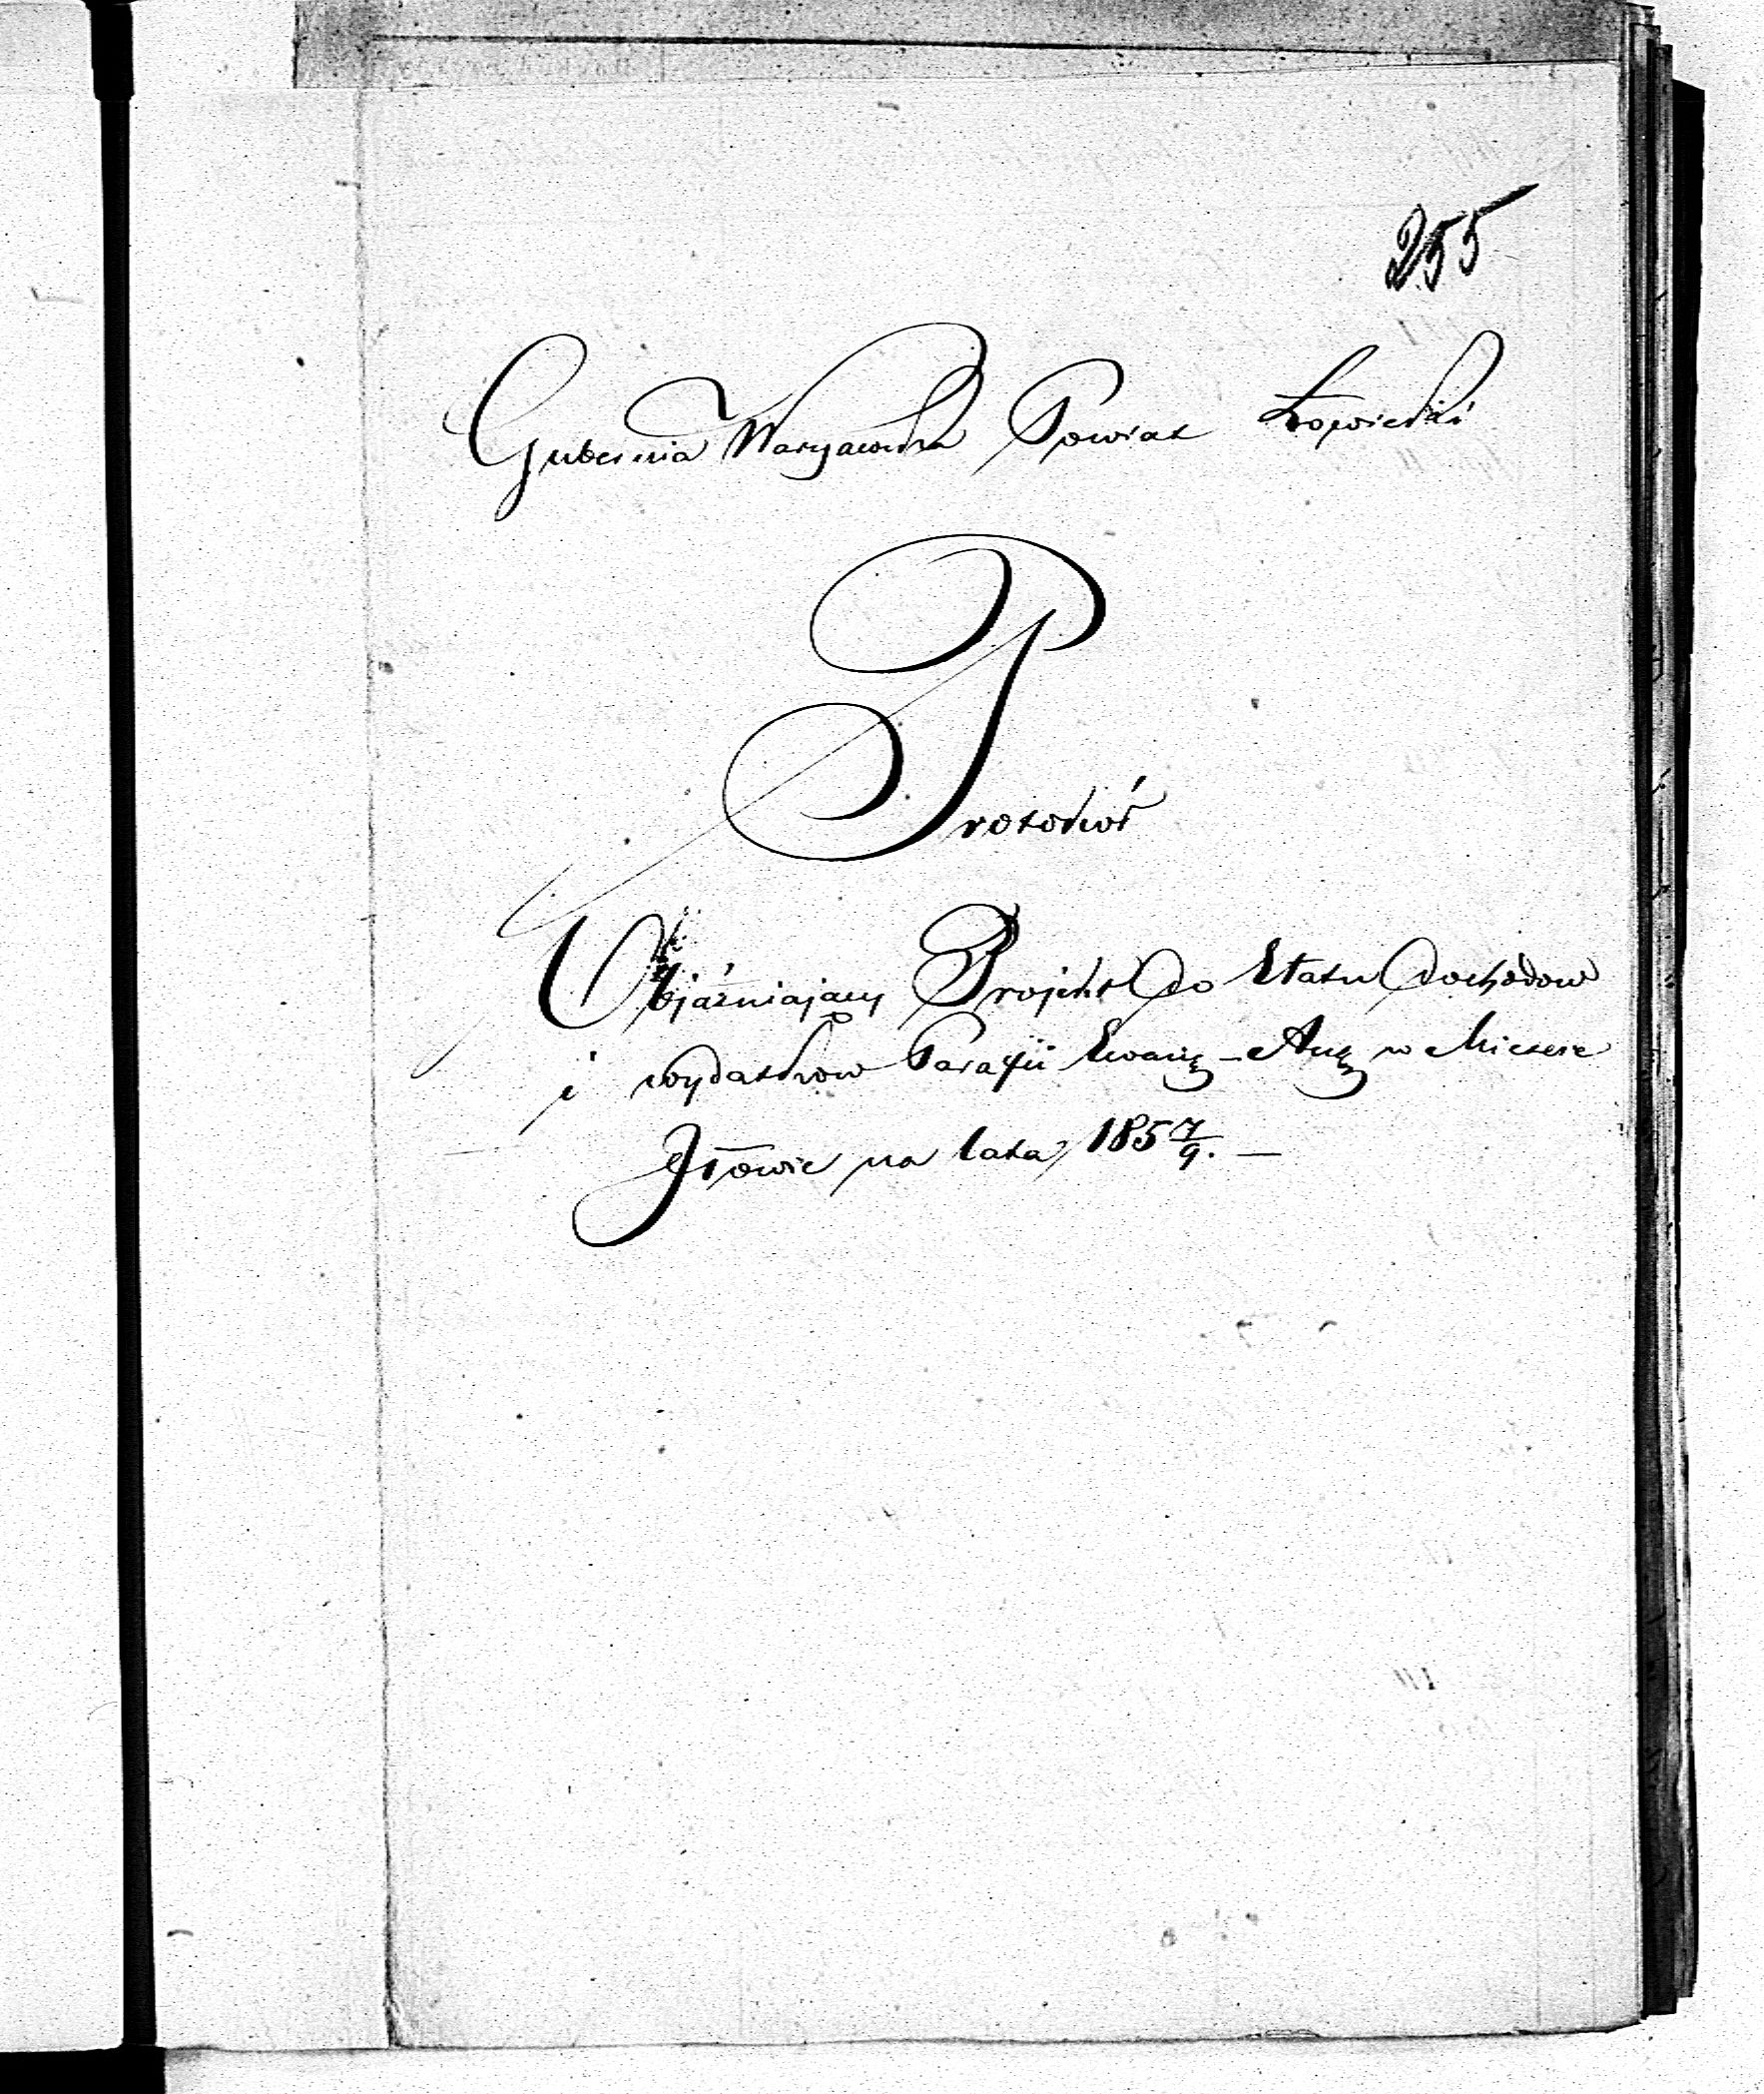 255
Gubernia Warszawska Powiat Łowicki
Protokół
Objaśniający Projekt do Etatu dochodow
i wydatkow Parafii Ewang-Aug w Miescie
Iłowie na lata 185 7/9. —